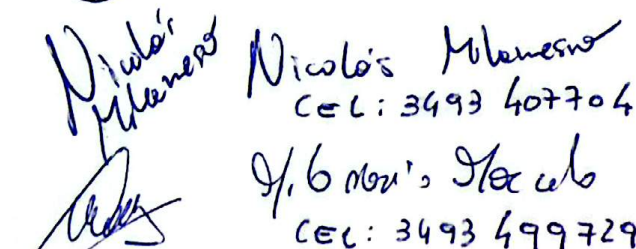 Nicolás Milanesio
Nicolás Milanesio
CEL: 3493 407704
CEL: 3493 499729